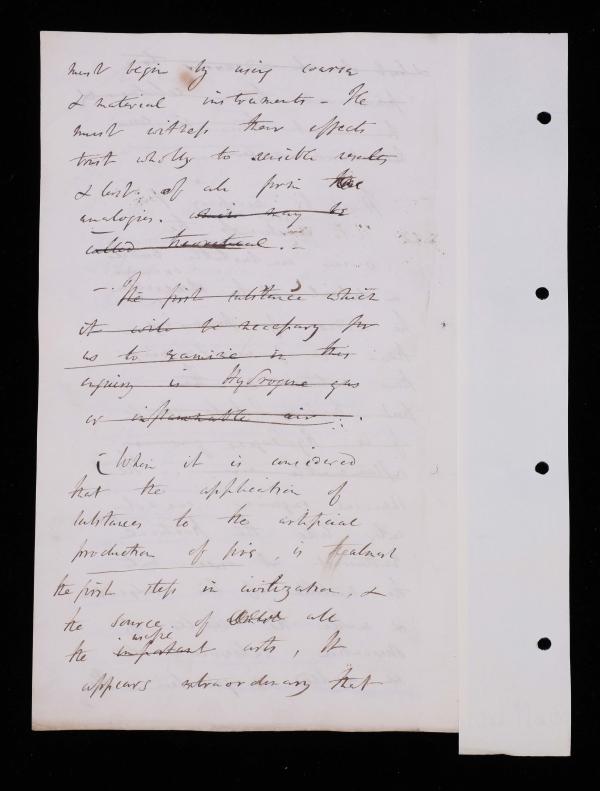 must begin by using coarse
& material instruments - He
must witness their effects
trust wholly to sensible results
& last of all form
analogies. which may be
called theoretical. -
- The first substance which
it will be necessary for
us to examine in this
enquiry is Hydrogene gas
or inflammable air.
When it is considered
that the application of
substances to the artificial
production of fire, is
the first step in civilization, &
the source of all
the important arts, It
appears extraordinary that